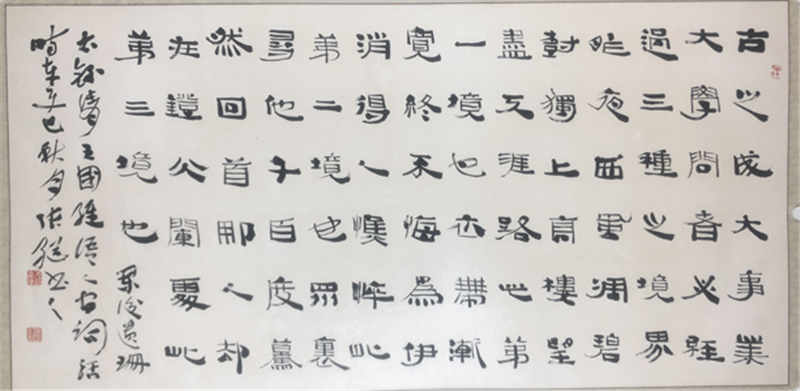 古之成大事業
大學問者必經
過三種之境界
昨夜西風凋碧
樹獨上高樓望
盡天涯路此第
一境也衣帶漸
寬終不悔為伊
消得人憔悴此
第二境也眾裏
尋他千百度驀
然回首那人却
在鐙火闌處此
第三境也
後遺珊
錄清王國維語人間詞話
時在辛巳秋月張繼書之